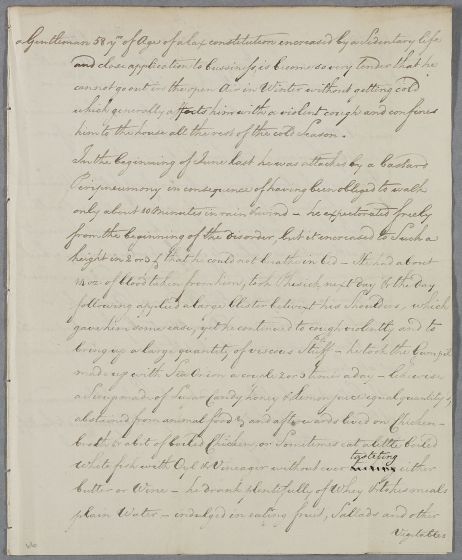 a Gentleman 58 yrs of Age of a lax constitution increased by a Sedentary life
and close application to bussiness, is become so very tender that he
cannot go out in the open Air in Winter without getting cold
which generally affects him with a violent cough and confines
him to the house all the rest of the cold Season.
In the beginning of June last he was attacked by a bastard
Peripneumony in consequence of having been obliged to walk
only about 10 minutes in rain & wind – he expectorated freely
from the beginning of the disorder, but it increased to such a
height in 2 or 3 ds that he could not breathe in bed – He had about
14 oz of blood taken from him, took Physick next day & the day
following applied a large blister betwixt his Shoulders, which
gave him some ease, yet he continued to cough violently and to
bring up a large quantity of viscous Stuff – he took the Gum pill
made up with Sea Onion a couple 2 or 3 times a day – likewise
a Syrup made of Sugar Candy honey & lemon juice equal quantitys
abstained from animal food & and afterwards lived on Chicken
broth & a bit of boiled Chicken, or Sometimes eat a little boiled
White fish with Oyl & Vinegar without ever tasteting either
butter or Wine – he drank plentifully of Whey & to his meals
plain Water – indulged in eating fruit, Sallads and other
Vigetables